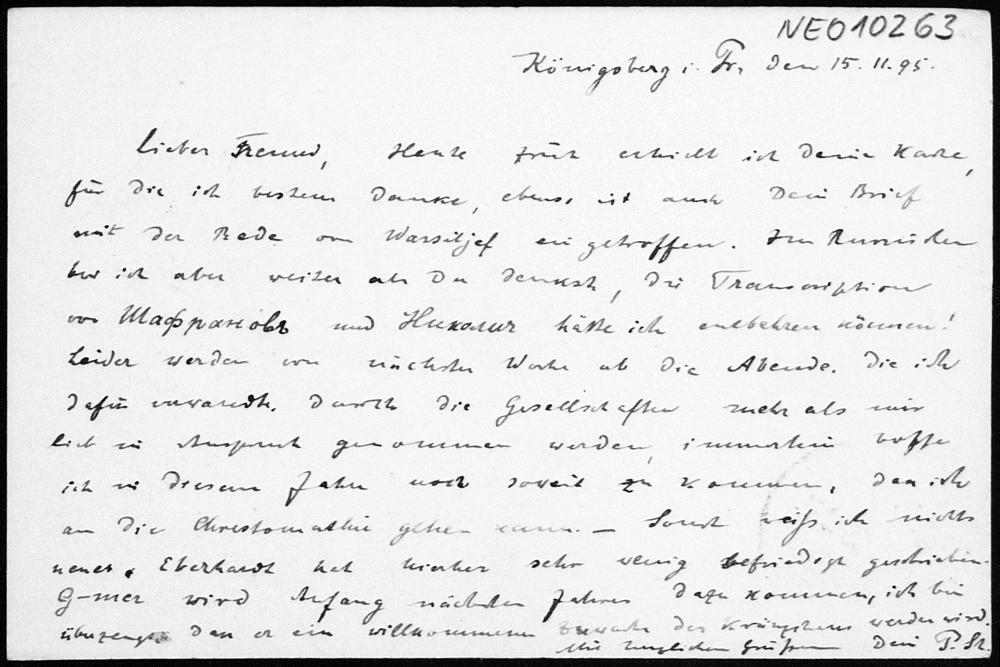 NEO10263
Königsberg i. Pr. den 15. 11. 95.
Lieber Freund, Heute früh erhielt ich Deine Karte,
für die ich bestens danke, ebenso ist auch Dein Brief
mit der Rede von Wassiljef eingetroffen. Im Russischen
bin ich aber weiter als Du denkst, die Transcription
von Шафрановъ und Николич hätte ich entbehren können!
Leider werden von nächster Woche ab die Abende, die ich
dafür verwandte, durch die Gesellschaften mehr als mir
lieb in Anspruch genommen werden, immerhin hoffe
ich in diesem Jahre noch soweit zu kommen, dass ich
an die Chrestomathie gehen kann. — Sonst weiß ich nichts
neues. Eberhardt hat hierher sehr wenig befriedigt geschrieben.
G-mer wird Anfang nächsten Jahres dazu kommen, ich bin
überzeugt dass er ein willkommener Zuwachs des Kränzchens werden wird.
Mit herzlichen Grüßen Dein P. St.